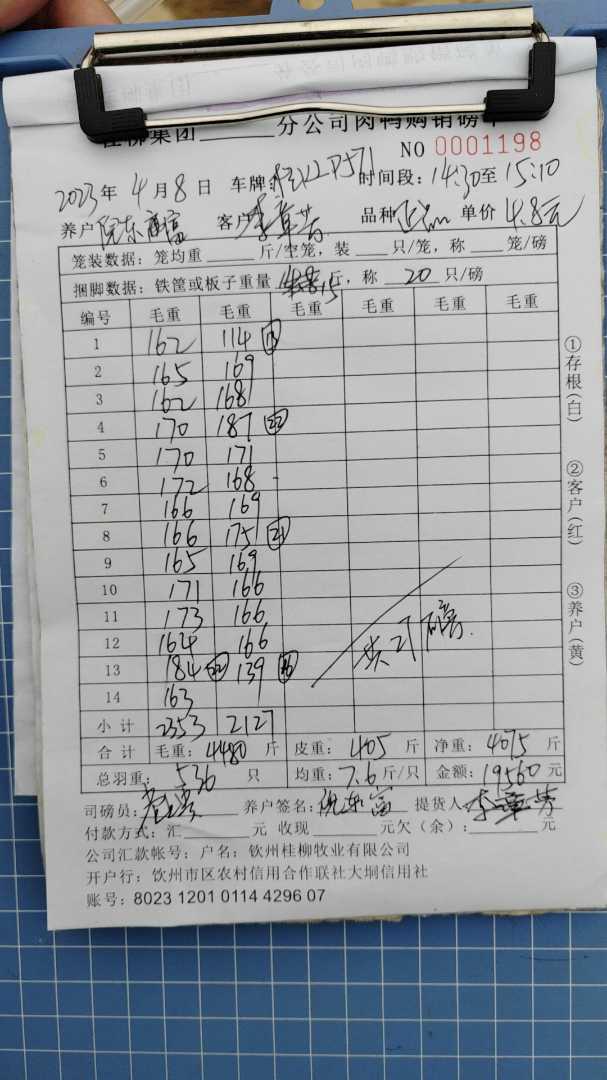 桂柳集团______分公司肉鸭购销磅单
NO 0001198
2023年 4月8日 车牌: 时间段: 14:30至15:10
养户 客户 李章芳 品种 单价 4.8元
笼装数据: 笼均重______斤/空笼, 装___只/笼, 称___笼/磅
捆脚数据: 铁筐或板子重量 15 斤, 称 20 只/磅
编号 毛重 毛重 毛重 毛重 毛重 毛重
1 162 114 ⑬
2 165 169
3 162 168
4 170 187 ㉒
5 170 171
6 172 168
7 166 169
8 166 175 ㉑
9 165 169
10 171 166
11 173 166
12 164 166
13 184 ㉒ 139 ⑯
14 163
共27磅.
小计 2353 2127
合计 毛重: 4480 斤 皮重: 405 斤 净重: 4075 斤
总羽重: 536 只 均重: 7.6 斤/只 金额: 19560 元
司磅员: 养户签名: 提货人: 李章芳
付款方式: 汇______元 收现______元欠(余): ______元
公司汇款帐号: 户名: 钦州桂柳牧业有限公司
开户行: 钦州市区农村信用合作联社大垌信用社
账号: 8023 1201 0114 4296 07
①存根(白)
②客户(红)
③养户(黄)